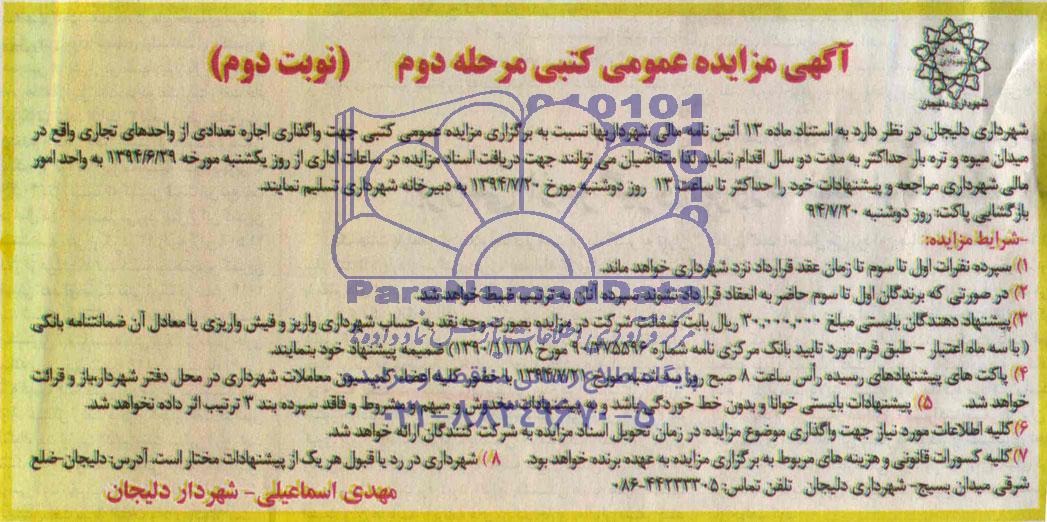 دلیجان
شهرداری
شهرداری دلیجان
آگهی مزایده عمومی کتبی مرحله دوم (نوبت دوم)
شهرداری دلیجان در نظر دارد به استناد ماده ۱۳ آئین نامه مالی شهرداریها نسبت به برگزاری مزایده عمومی کتبی جهت واگذاری اجاره تعدادی از واحدهای تجاری واقع در
میدان میوه و تره بار حداکثر به مدت دو سال اقدام نماید. لذا متقاضیان می توانند جهت دریافت اسناد مزایده در ساعات اداری از روز یکشنبه مورخه ۱۳۹۴/۶/۲۹ به واحد امور
مالی شهرداری مراجعه و پیشنهادات خود را حداکثر تا ساعت ۱۳ روز دوشنبه مورخ ۱۳۹۴/۷/۲۰ به دبیرخانه شهرداری تسلیم نمایند.
بازگشایی پاکت: روز دوشنبه ۹۴/۷/۲۰
-شرایط مزایده:
۱) سپرده نفرات اول تا سوم تا زمان عقد قرارداد نزد شهرداری خواهد ماند.
۲) در صورتی که برندگان اول تا سوم حاضر به انعقاد قرارداد نشوند سپرده آنان به ترتیب ضبط خواهد شد.
۳) پیشنهاد دهندگان بایستی مبلغ ۳۰,۰۰۰,۰۰۰ ریال بابت ضمانت شرکت در مزایده بصورت وجه نقد به حساب شهرداری واریز و فیش واریزی یا معادل آن ضمانتنامه بانکی
(با سه ماه اعتبار - طبق فرم مورد تایید بانک مرکزی نامه شماره مورخ ۱۳۹۰/۱۱/۱۸) ضمیمه پیشنهاد خود بنمایند.
۴) پاکت های پیشنهادهای رسیده رأس ساعت ۸ صبح روز مورخ با حضور کلیه اعضاء کمیسیون معاملات شهرداری در محل دفتر شهردار،باز و قرائت
خواهد شد. ۵) پیشنهادات بایستی خوانا و بدون خط خوردگی باشد و به پیشنهادات مخدوش و مبهم و مشروط و فاقد سپرده بند ۳ ترتیب اثر داده نخواهد شد.
۶) کلیه اطلاعات مورد نیاز جهت واگذاری موضوع مزایده در زمان تحویل اسناد مزایده به شرکت کنندگان ارائه خواهد شد.
۷) کلیه کسورات قانونی و هزینه های مربوط به برگزاری مزایده به عهده برنده خواهد بود. ۸) شهرداری در رد یا قبول هر یک از پیشنهادات مختار است. آدرس: دلیجان-ضلع
شرقی میدان بسیج- شهرداری دلیجان تلفن تماس: ۰۸۶-۴۴۲۳۳۳۰۵
مهدی اسماعیلی- شهردار دلیجان
ParsNamadData
۰۲۱-۸۸۳۴۹۶۷۰-۵